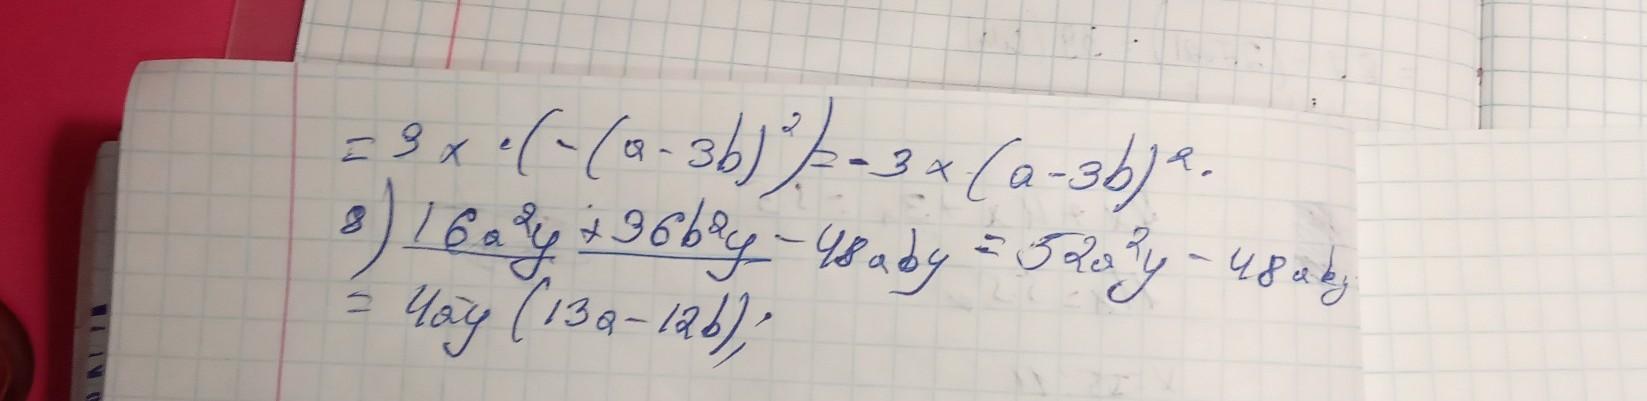 = 3x · (-(a-3b)²) = -3x(a-3b)².
8) 16a²y + 36b²y - 48aby = 52a²y - 48aby
= 4ay(13a-12b);